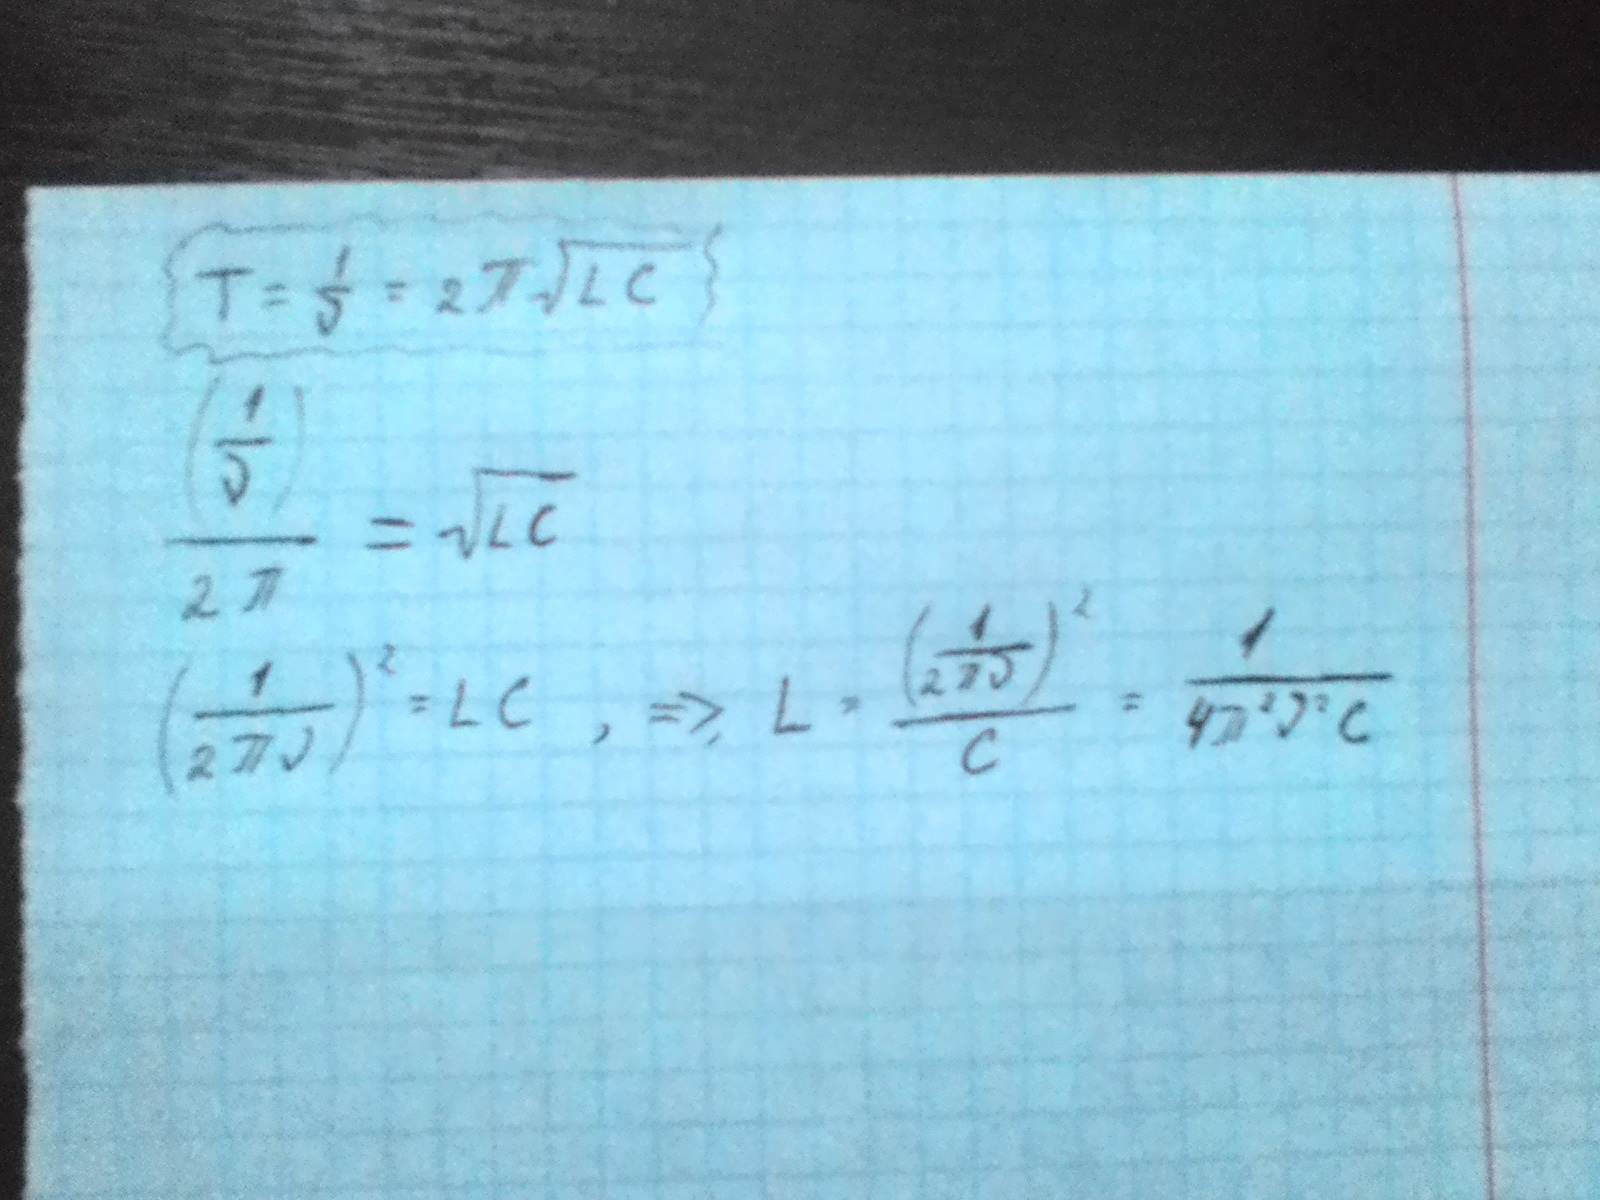 T = 1/ν = 2π√LC
(1/ν)/2π = √LC
(1/2πν)² = LC, => L = (1/2πν)²/C = 1/4π²ν²C